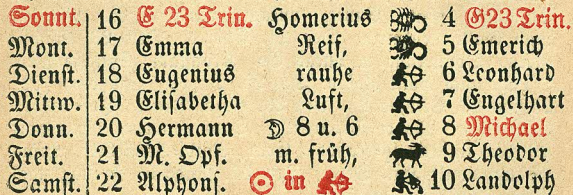 Sonnt. 16 E 23 Trin. Homerius 4 G23 Trin.
Mont. 17 Emma Reif, 5 Emerich
Dienst. 18 Eugenius rauhe 6 Leonhard
Mittw. 19 Elisabetha Luft, 7 Engelhart
Donn. 20 Hermann ☽ 8 u. 6 8 Michael
Freit. 21 M. Opf. m. früh, 9 Theodor
Samst. 22 Alphons. ☉ in ♐ 10 Landolph